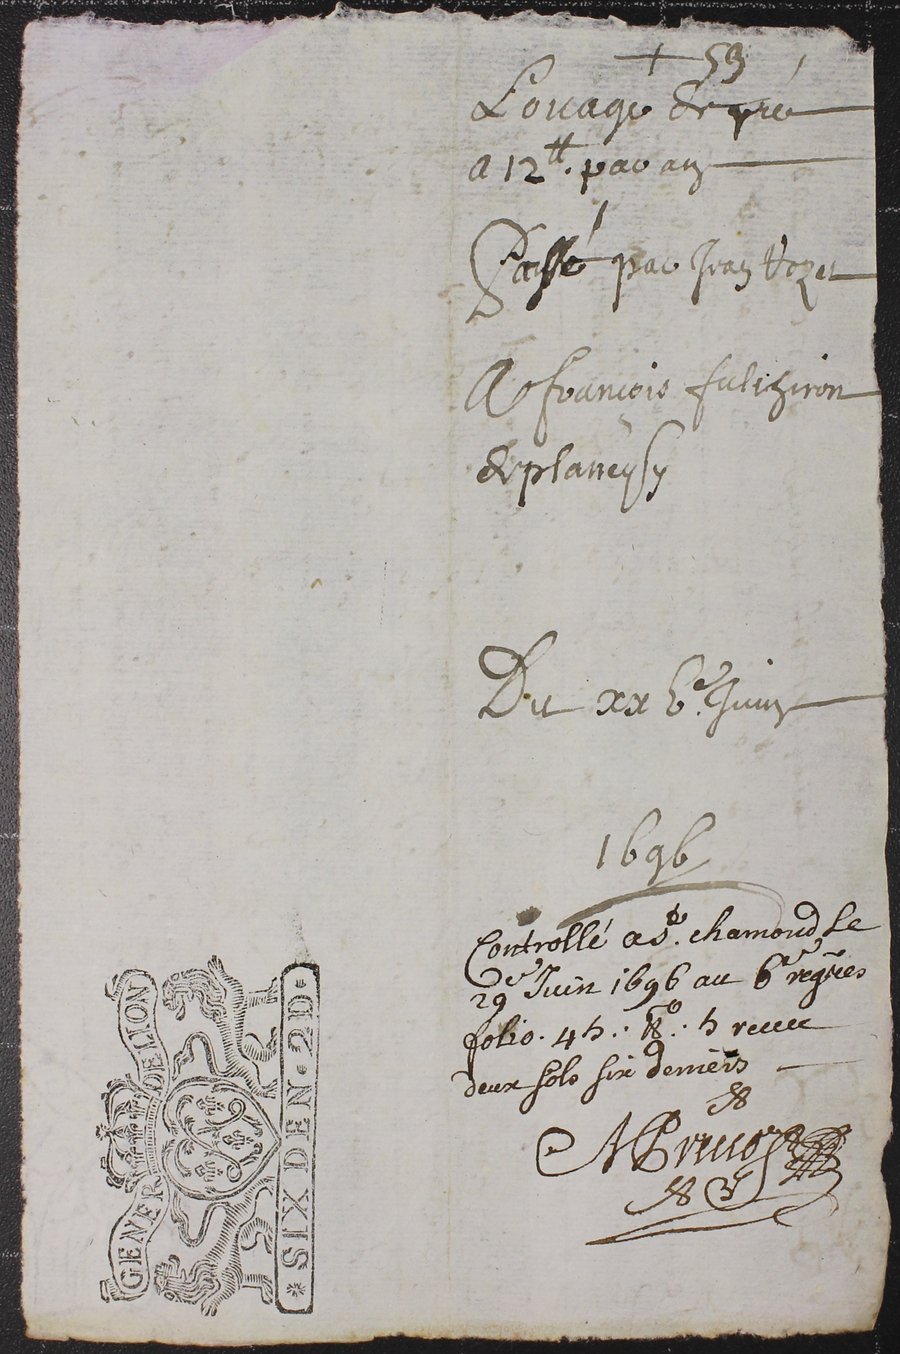 + 59
Louage de pré
a 12tt. par an
Passé par Jean
A françois fulchiron
de planeysy
Du xxbe. Juin
1696
Controllé a st. chamond Le
29e Juin 1696 au 6e regres
folio. 45. Ro. 5 receu
deux sols six deniers
GENER DE LION
* SIX DEN · 2D ·